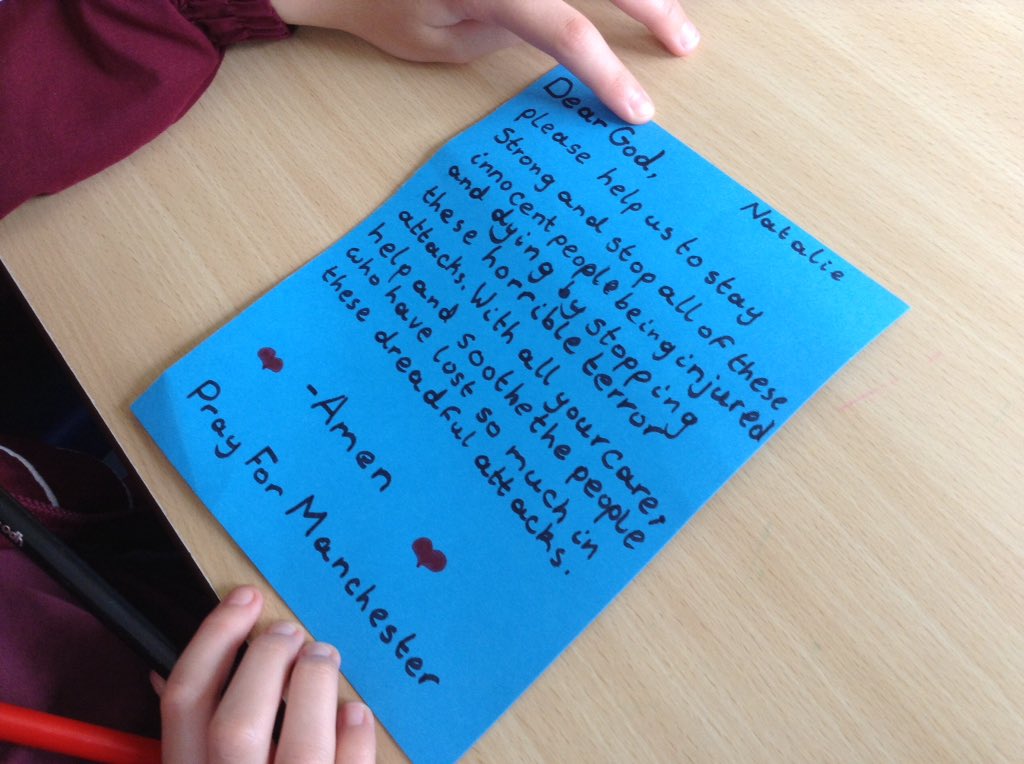 Natalie
Dear God,
please help us to stay
Strong and stop all of these
innocent people being injured
and dying by stopping
these horrible terror
attacks. With all your care,
help and soothe the people
who have lost so much in
these dreadful attacks.
-Amen
Pray For Manchester